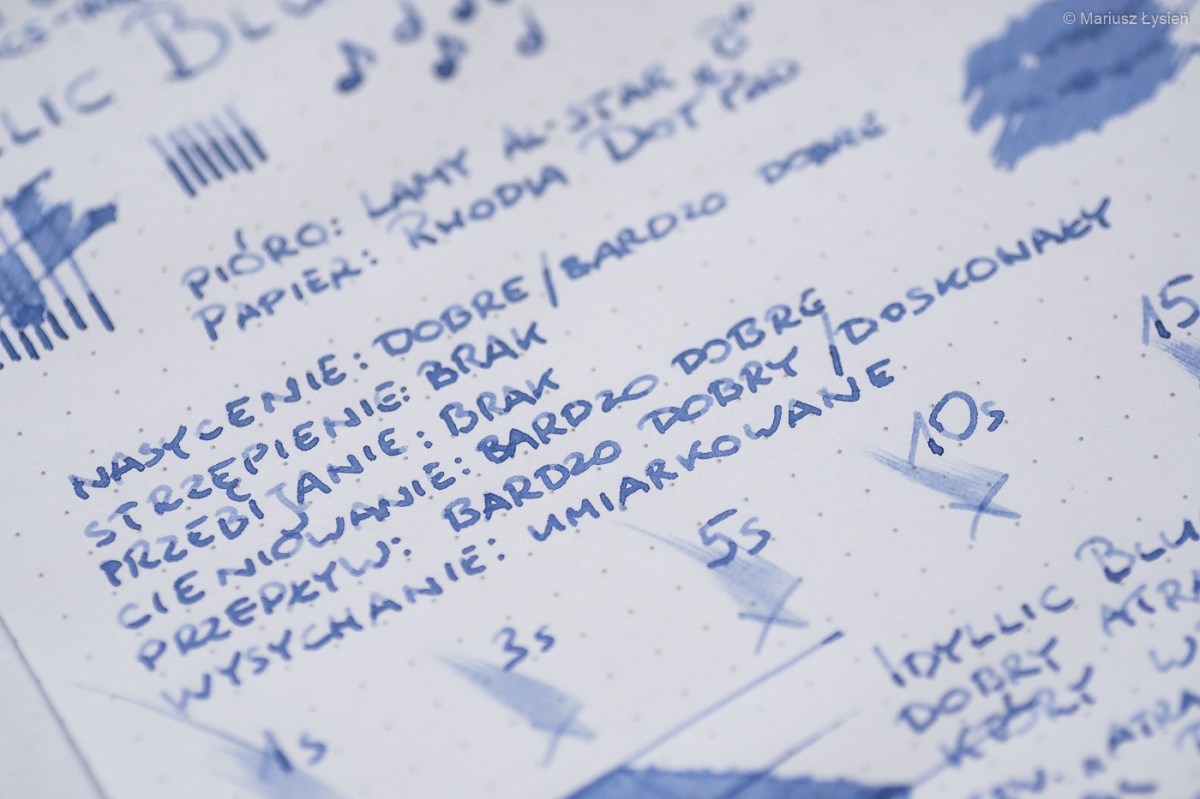 © Mariusz Łysień
LLIC BLU
PIÓRO: LAMY AL-STAR "B"
PAPIER: RHODIA DOT PAD
NASYCENIE: DOBRE/BARDZO DOBRE
STRZĘPIENIE: BRAK
PRZEBIJANIE: BRAK
CIENIOWANIE: BARDZO DOBRE
PRZEPŁYW: BARDZO DOBRY/DOSKONAŁY
WYSYCHANIE: UMIARKOWANE
1s 3s 5s 10s 15
IDYLLIC BLU
DOBRY ATRA
KTÓRY W